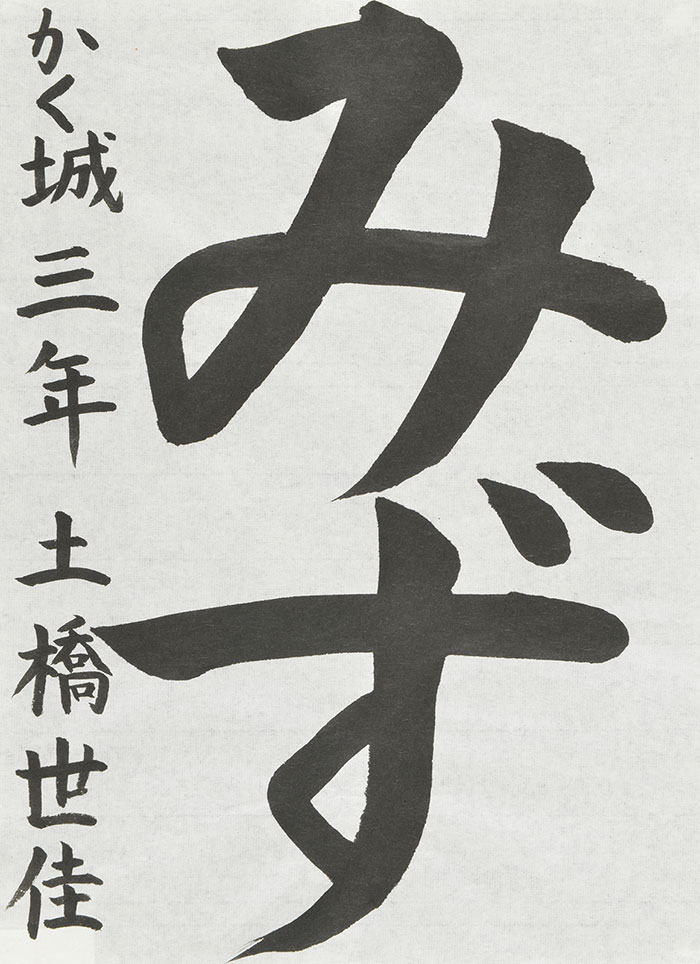 みず
かく城三年 土橋世佳